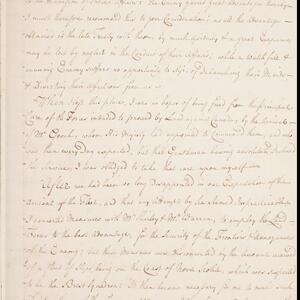 to the management of Indian Affairs the Enemy gained great Advantages thereby
I must therefore recommend this to your Consideration as all the Advantages
obtained in the late Treaty with them, by much and a great Expence
may be lost by neglect in the Conduct of their Affairs, while a watchfull &
cunning Enemy suffers no opportunity to slip of debauching their Minds
& Diverting their affections from us
When I left this place, I was in hopes of being freed from the principal
Care of the Forces intended to proceed by Land against Canada by the Arrival
of Mr Gooch, whom His Majesty had appointed to Command them, and who
was then every day expected, but that Gentleman having absolutely declined
the Service, I was obliged to take that care upon myself
After we had been so long disappointed in our Expectation of the
Arrival of the Fleet, and that any attempt by Sea
I concerted Measures with Mr Shirley & Mr Warren, to employ the Land
Forces to the best Advantage, for the Security of the Frontiers & Annoyance
of the Enemy; but these Measures were disconcerted by the Accounts received
of a fleet of Ships being on the Coast of Nova Scotia which was suspected
to be the Brest Squadron. It then became necessary to